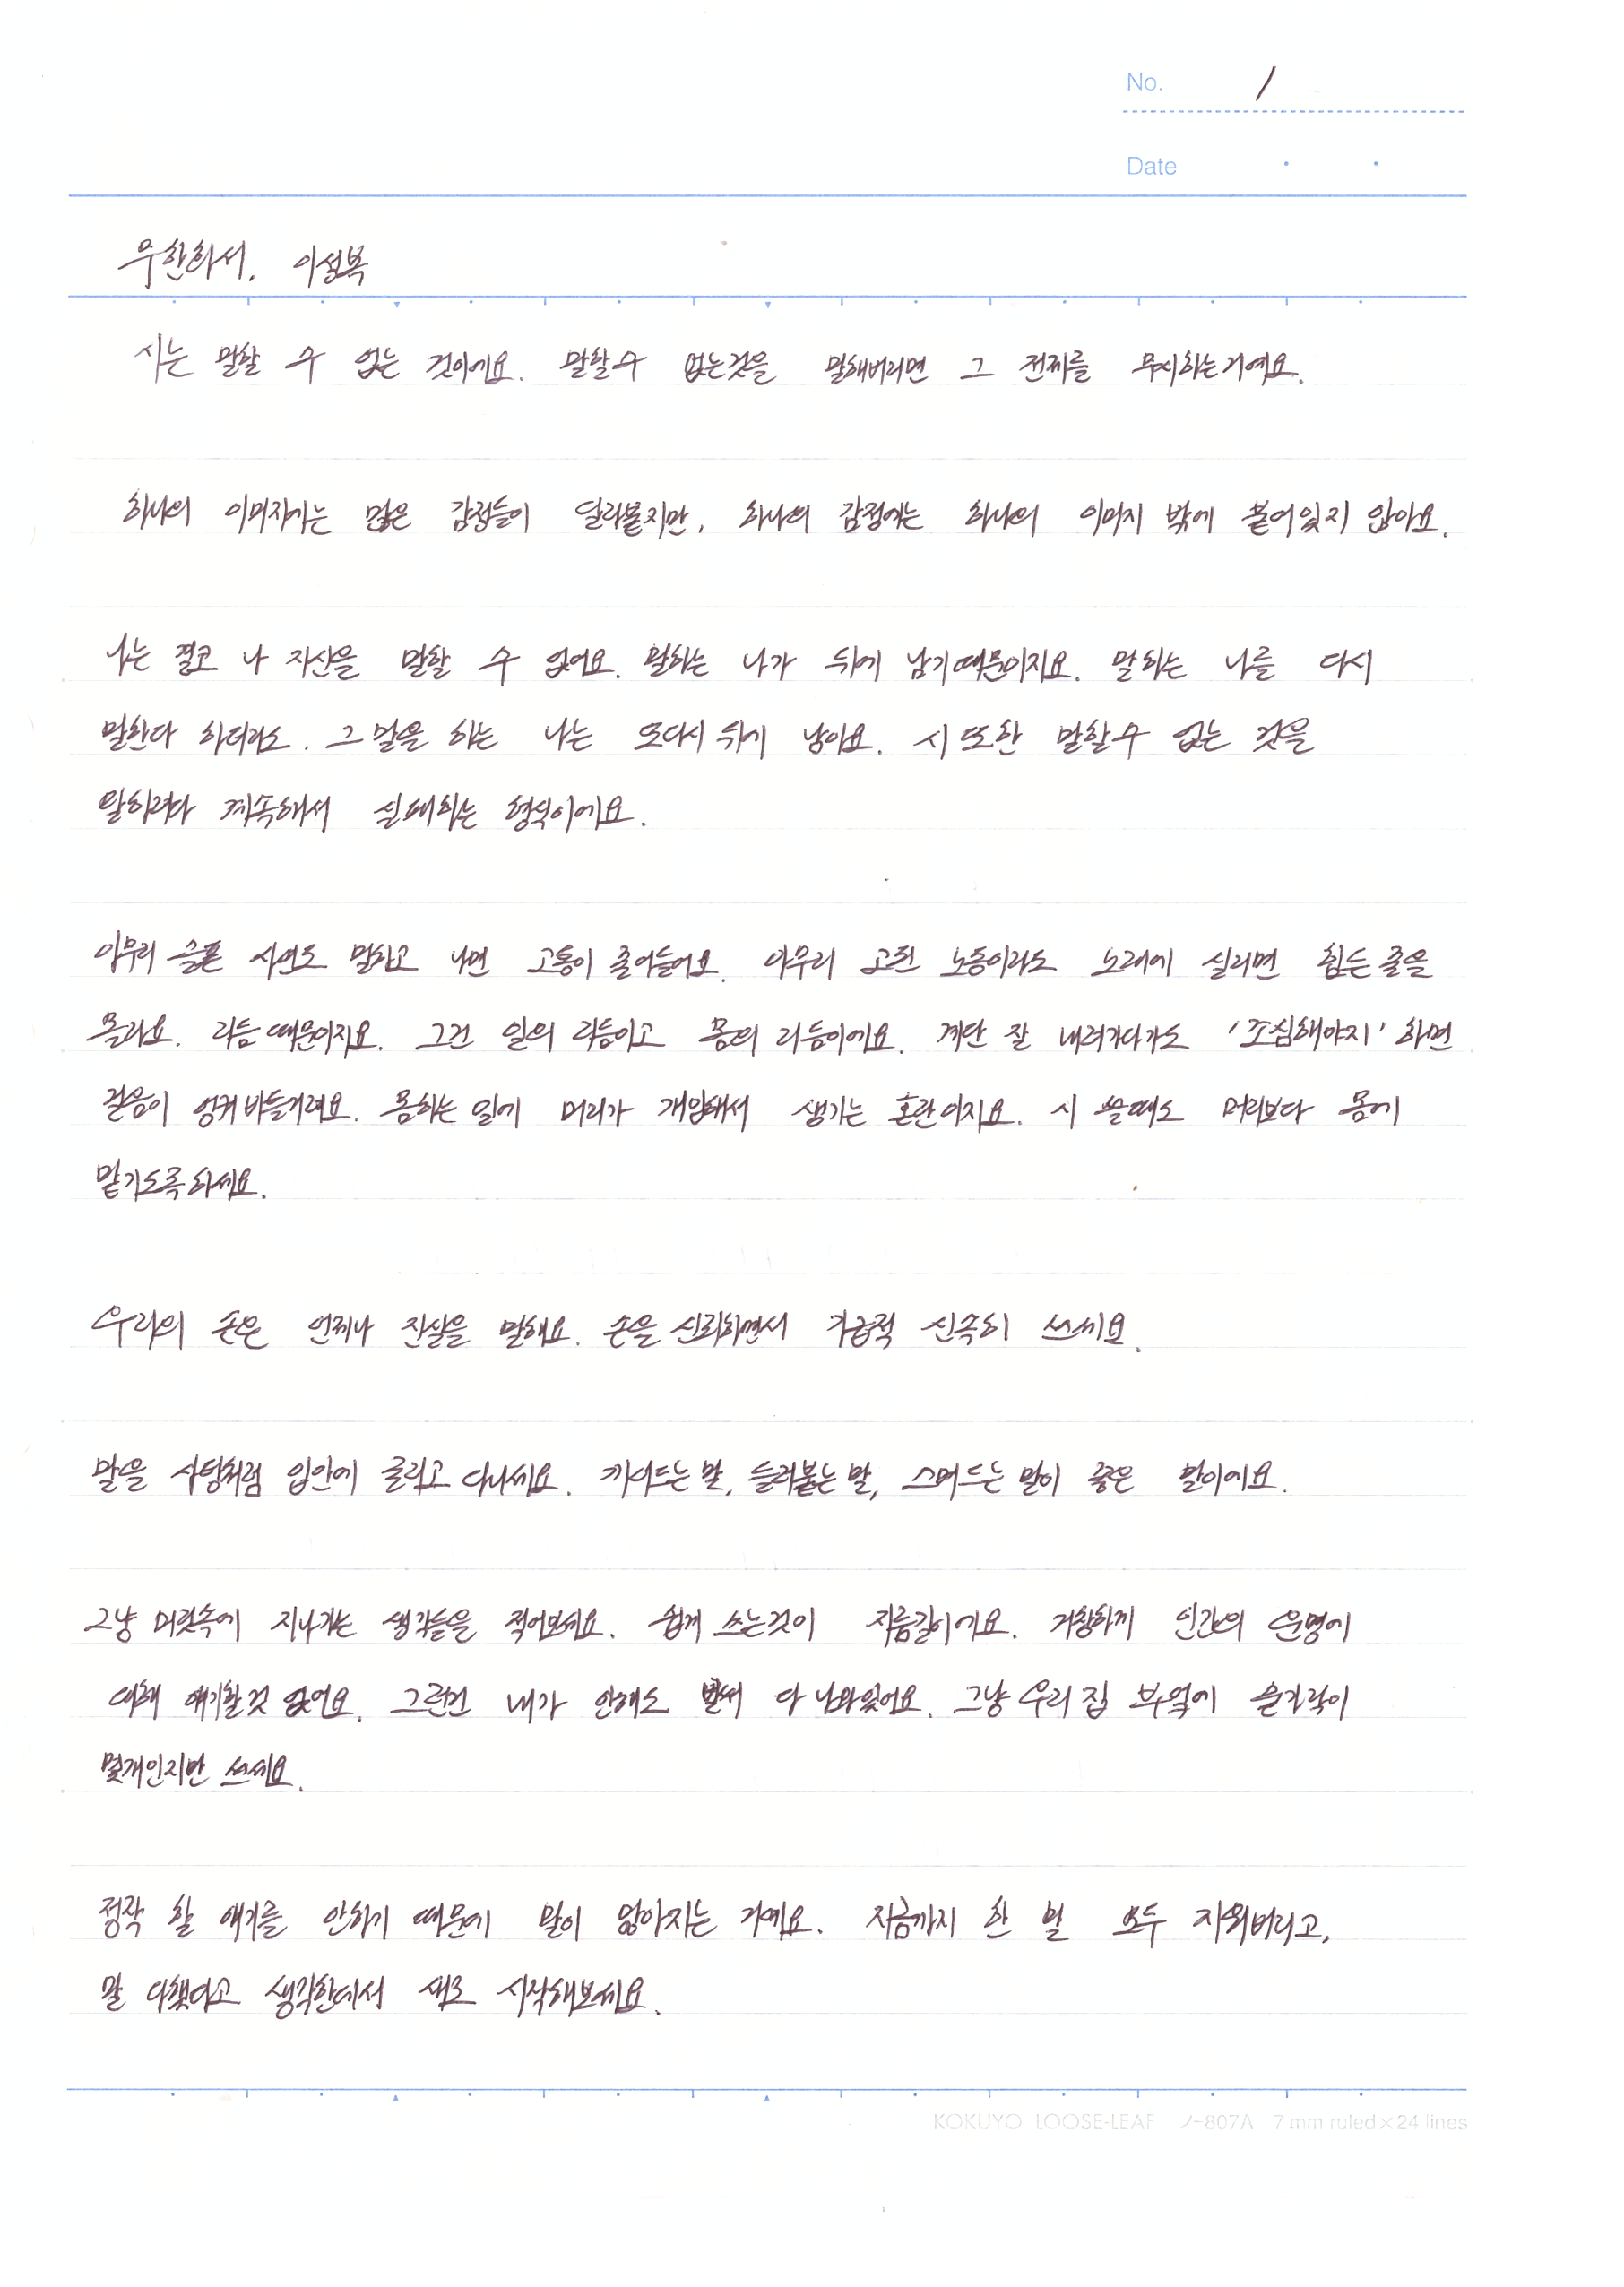 No. 1
Date
무한화서. 이성복
시는 말할 수 없는 것이에요. 말할수 없는것을 말해버리면 그 전제를 무시하는거예요.
하나의 이미지에는 많은 감정들이 달라붙지만, 하나의 감정에는 하나의 이미지 밖에 붙어있지 않아요.
나는 결코 나 자신을 말할 수 없어요. 말하는 나가 뒤에 남기때문이지요. 말하는 나를 다시
말한다 하더라도. 그 말을 하는 나는 또다시 뒤에 남아요. 시 또한 말할수 없는 것을
말하려다 계속해서 실패하는 형식이에요.
아무리 슬픈 사연도 말하고 나면 고통이 줄어들어요. 아무리 고된 노동이라도 노래에 실리면 힘든줄을
몰라요. 리듬때문이지요. 그건 일의 리듬이고 몸의 리듬이에요. 계단 잘 내려가다가도 '조심해야지' 하면
걸음이 엉켜 버들거려요. 몸하는 일에 머리가 개입해서 생기는 혼란이지요. 시 쓸때도 머리보다 몸에
맡기도록하세요.
우리의 손은 언제나 진실을 말해요. 손을 신뢰하면서 가급적 신속히 쓰세요.
말을 사탕처럼 입안에 굴리고 다니세요. 끼어드는 말, 들러붙는 말, 스며드는 말이 좋은 말이에요.
그냥 머릿속에 지나가는 생각들을 적어보세요. 쉽게 쓰는것이 지름길이에요. 거창하게 인간의 운명에
대해 얘기할것 없어요. 그런건 내가 안해도 벌써 다 나와있어요. 그냥 우리 집 부엌에 숟가락이
몇개인지만 쓰세요.
정작 할 얘기를 안하기 때문에 말이 많아지는 거예요. 지금까지 한 말 모두 지워버리고,
말 다했다고 생각한데서 새로 시작해보세요.
KOKUYO LOOSE-LEAF ノ-807A 7 mm ruled×24 lines